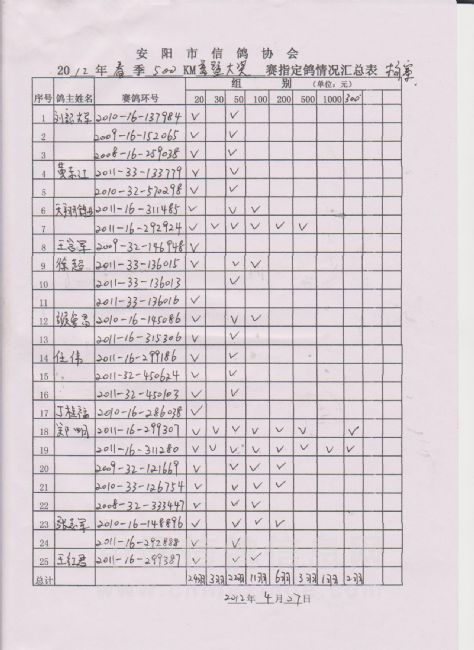 安阳市信鸽协会
2012年 春 季 500 KM 大奖 赛指定鸽情况汇总表
组 别 (单位:元)
序号 鸽主姓名 赛鸽环号 20 30 50 100 200 500 1000 300
1 2010-16-137984 ✓ ✓
2 2009-16-152065 ✓ ✓
3 2008-16-259038 ✓ ✓
4 黄东江 2011-33-133779 ✓ ✓
5 2010-32-570298 ✓ ✓
6 2011-16-311485 ✓ ✓ ✓
7 2011-16-292924 ✓ ✓ ✓ ✓ ✓ ✓
8 王富军 2009-32-146948 ✓
9 徐超 2011-33-136015 ✓ ✓ ✓
10 2011-33-136013 ✓
11 2011-33-136016 ✓
12 2010-16-145086 ✓ ✓ ✓
13 2011-16-315306 ✓ ✓
14 任伟 2011-16-299186 ✓ ✓
15 2011-32-450624 ✓ ✓
16 2011-32-450103 ✓ ✓
17 丁桂福 2010-16-286038 ✓
18 郑明 2011-16-299307 ✓ ✓ ✓ ✓ ✓ ✓ ✓
19 2011-16-311280 ✓ ✓ ✓ ✓ ✓ ✓ ✓ ✓
20 2009-32-121669 ✓ ✓ ✓ ✓
21 2010-33-126754 ✓ ✓ ✓ ✓
22 2008-32-333447 ✓ ✓ ✓
23 张志军 2010-16-148896 ✓ ✓ ✓ ✓
24 2011-16-292888 ✓ ✓
25 王红君 2011-16-299387 ✓ ✓ ✓
总计 24羽 3羽 22羽 11羽 6羽 3羽 1羽 2羽
2012年 4月27日